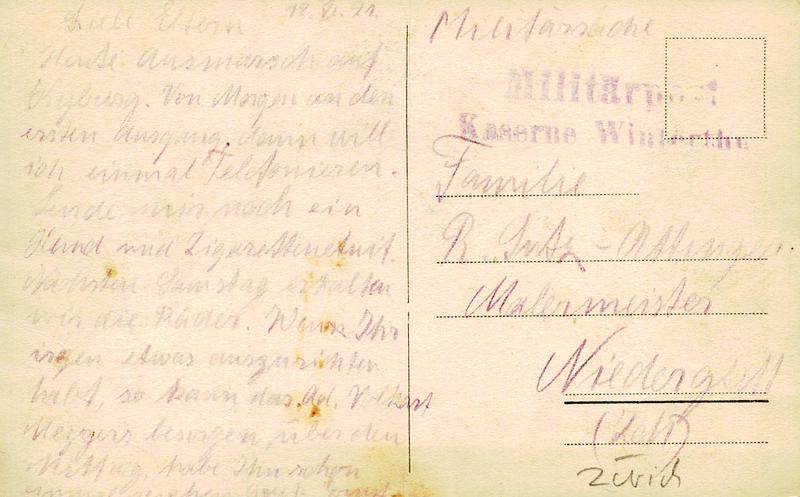 Liebe Eltern
Heute Ausmarsch auf
Kyburg. Von Morgen an den
ersten Ausgang, dann will
ich einmal Telefonieren.
Sende mir noch ein
Hemd und Zigarettenetuit.
Nächsten Samstag erhalten
wir die Räder. Wenn Ihr
irgen etwas auszurichten
habt, so kann das Ad. Volkart
Metzgers besorgen, über den
Mittag, habe Ihn schon
einmal
Militärsache
Militärpost
Kaserne Winterthu
Familie
R. Sutz - Attinger
Malermeister
Niederglatt
Zürich